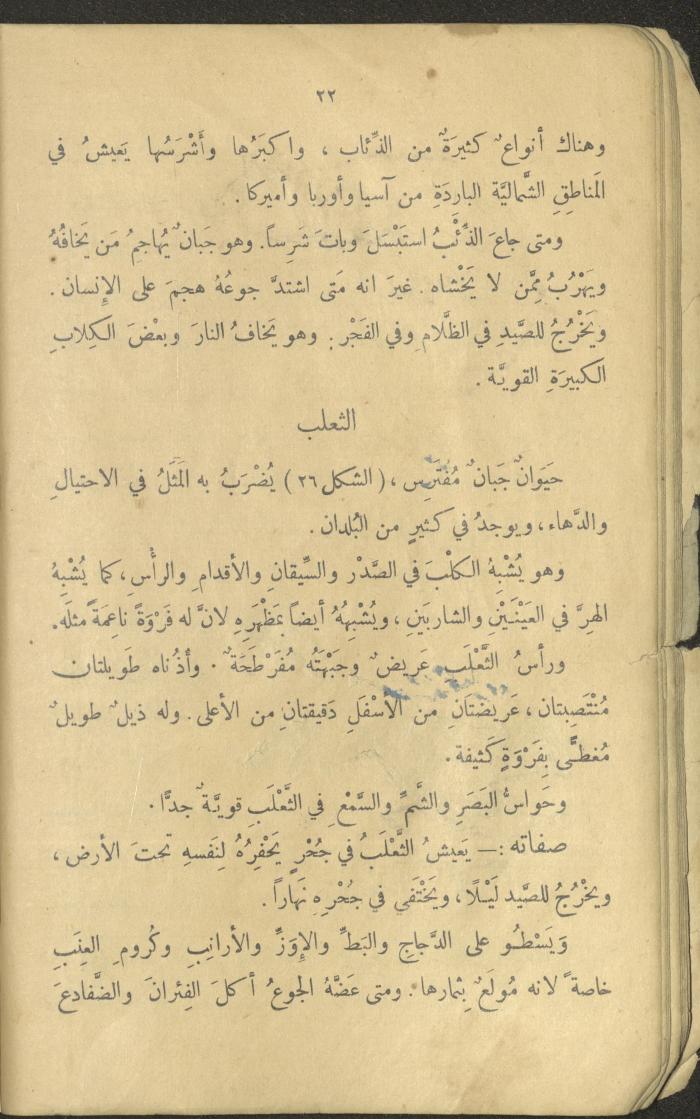 ٢٢
وهناك أنواعٌ كثيرَةٌ من الذِّئاب ، واكبَرُها وأَشْرَسُها يَعيشُ في
المَناطِقِ الشَّماليَّة الباردَةِ من آسيا وأوربا وأميركا .
ومتى جاعَ الذِّئْبُ استَبْسَلَ وباتَ شَرِساً . وهو جَبانٌ يُهاجِمُ مَن يَخافُهُ
ويَهْرُبُ مِمَّن لا يَخْشاه . غيرَ انه مَتى اشتدَّ جوعُهُ هجمَ على الإِنسان .
ويَخْرُجُ للصَّيدِ في الظَّلامِ وفي الفَجْر . وهو يَخافُ النارَ وبعْضَ الكِلابِ
الكبيرَةِ القويَّة .
الثعلب
حيَوانٌ جَبانٌ مُفْتَرِس ، ( الشكل ٢٦ ) يُضْرَبُ به المَثَلُ في الاحتيالِ
والدَّهاء ، ويوجدُ في كثيرٍ من البُلدان .
وهو يُشْبِهُ الكلْبَ في الصَّدْر والسِّيقانِ والأقدامِ والرأْسِ ، كما يُشْبِهُ
الهِرَّ في العَيْنَيْنِ والشاربَينِ ، ويُشْبِهُهُ أيضاً بمَظْهَرِهِ لانَّ له فَرْوَةً ناعِمَةً مثلَه .
ورأسُ الثَّعْلَبِ عَريضٌ وجَبْهَتُه مُفَرْطَحَةٌ . وأذُناه طَويلتان
مُنْتَصِبتان ، عَريضَتانِ من الأسْفَلِ دَقيقتانِ من الأعلى . وله ذيلٌ طويلٌ
مُغطًّى بِفَرْوَةٍ كَثيفة .
وحَواسُّ البَصَرِ والشَّمِّ والسَّمْعِ في الثَّعْلَبِ قويَّةٌ جدًّا .
صفاته : — يَعيشُ الثَّعْلَبُ في جُحْرٍ يَحْفِرُهُ لِنَفسهِ تحتَ الأرض ،
ويخْرُجُ للصَّيد لَيْلًا ، ويَخْتَفي في جُحْرِهِ نَهاراً .
وَيَسْطُو على الدَّجاجِ والبَطِّ والإِوَزِّ والأرانِبِ وكُرومِ العِنَبِ
خاصةً لانه مُولَعٌ بِثمارها . ومتى عَضَّهُ الجوعُ أكلَ الفِئرانَ والضَّفادعَ